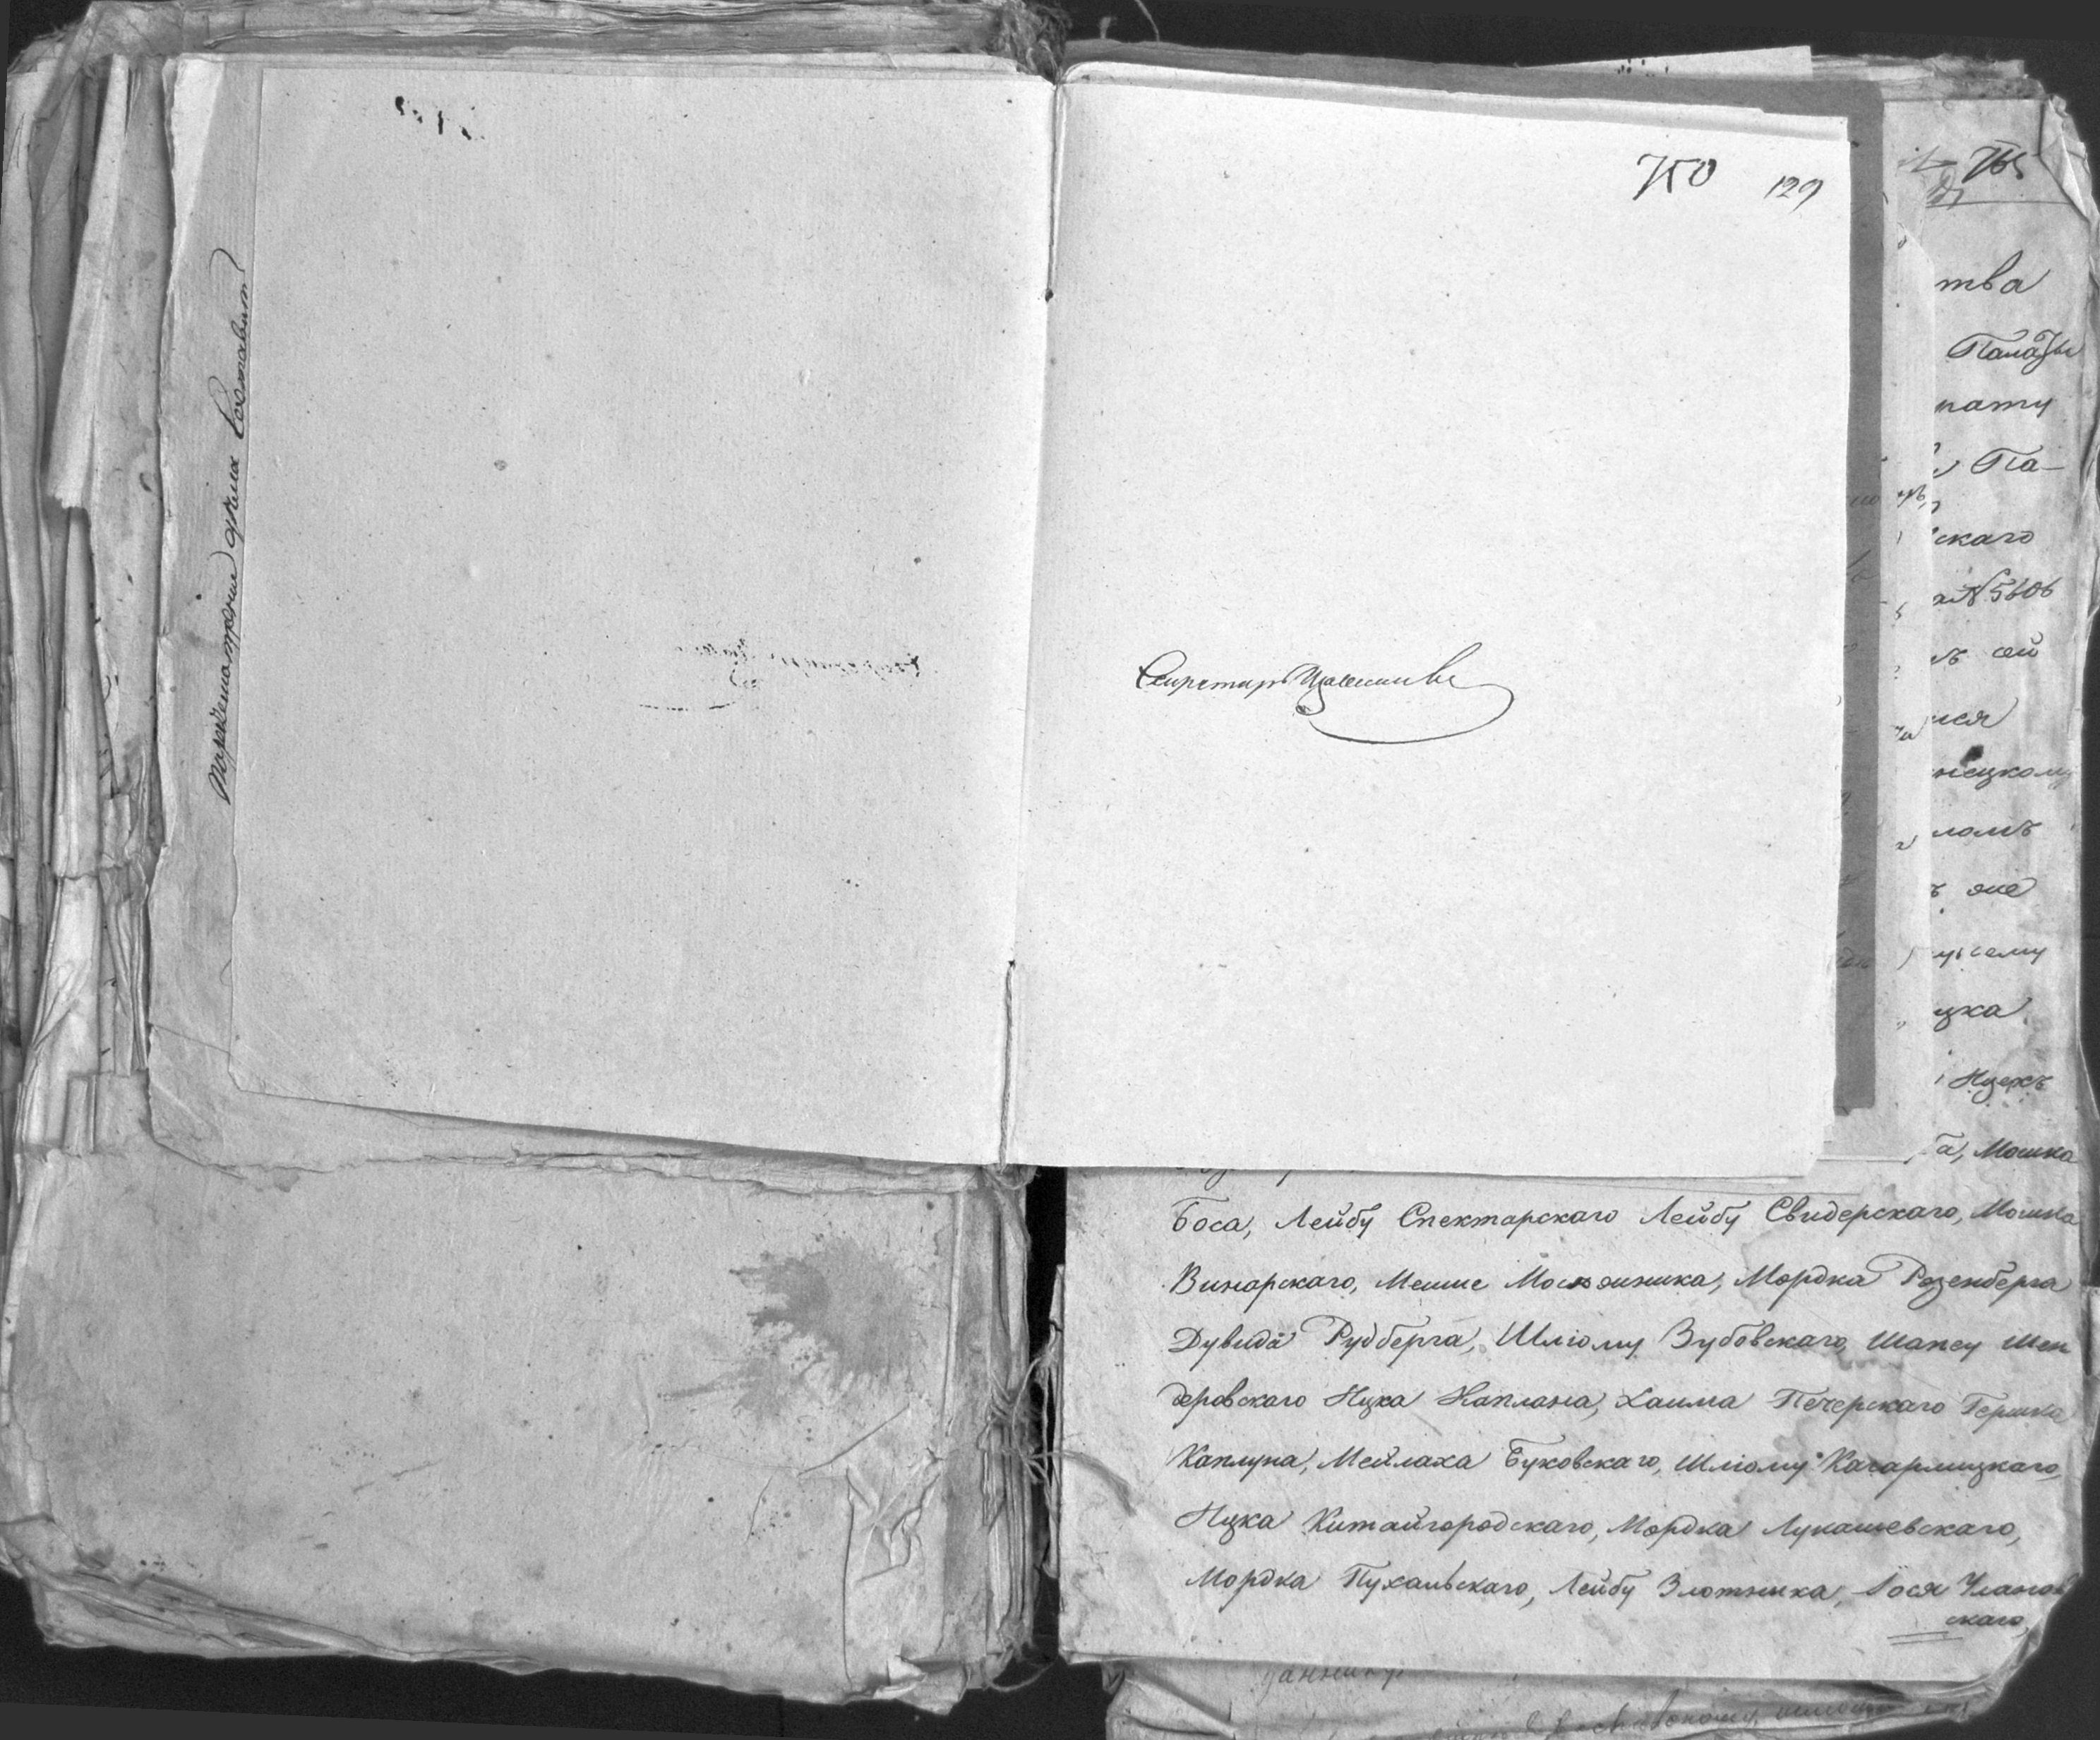 по разсмотрении дѣла Составит
750 129
Секретарь
765
тва
Палаты
нату
Па-
скаго
№ 5606
сей
нецкому
ломъ
же
цка
Ицекъ
а, Мошка
Боса, Лейбу Спектарскаго Лейбу Свидерскаго, Мошка
Винарскаго, Мешие Мошонника, Мордка Розенберга
Дувида Рудберга, Шліому Зубовскаго, Шапсу Шен
деровскаго Ицка Каплана, Хаима Печерскаго Гершка
Каплуна, Мейлаха Буковскаго, Шліому Кагарлицкаго,
Ицка Китайгородскаго, Мордка Лукашевскаго,
Мордка Пухальскаго, Лейбу Злотника, Іося Уланов
скаго,